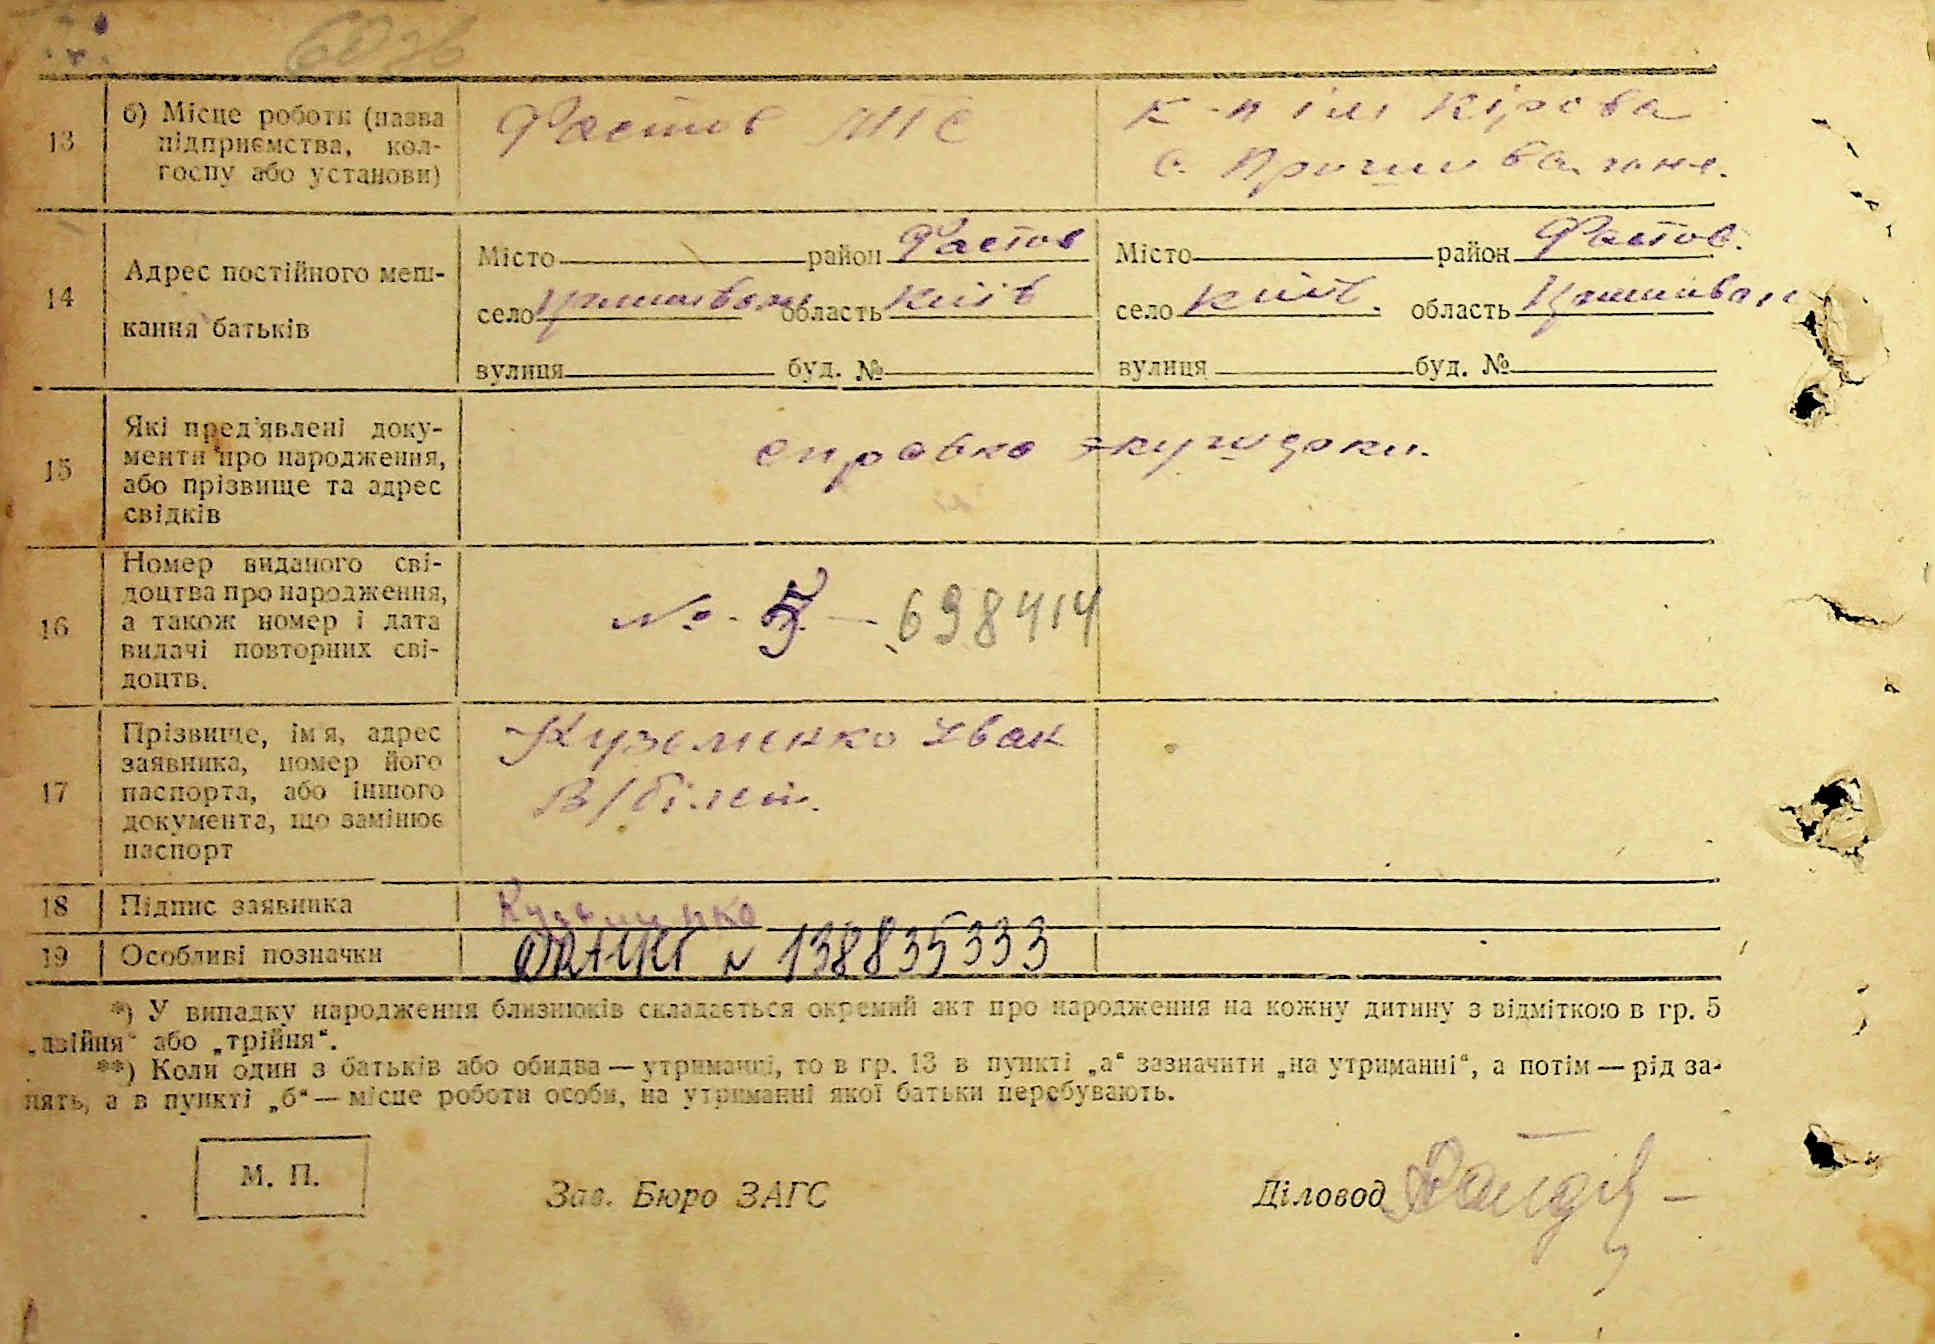 13
б) Місце роботи (назва
підприємства, кол-
госпу або установи)
Фастов МТС
к-п ім Кірова
с.
14
Адрес постійного меш-
кання батьків
Місто район Фастов
село область Київ
вулиця буд. №
Місто район Фастов.
село Київ. область
вулиця буд. №
15
Які пред'явлені доку-
менти про народження,
або прізвище та адрес
свідків
справка акушерки.
16
Номер виданого сві-
доцтва про народження,
а також номер і дата
видачі повторних сві-
доцтв.
№ - 698414
17
Прізвище, ім'я, адрес
заявника, номер його
паспорта, або іншого
документа, що замінює
паспорт
Кузьменко Іван
В/білет.
18
Підпис заявника
Кузьменко
19
Особливі позначки
ДРАЦСГ № 138835333
*) У випадку народження близнюків складається окремий акт про народження на кожну дитину з відміткою в гр. 5
„двійня“ або „трійня“.
**) Коли один з батьків або обидва — утриманці, то в гр. 13 в пункті „а“ зазначити „на утриманні“, а потім — рід за-
нять, а в пункті „б“ — місце роботи особи, на утриманні якої батьки перебувають.
М. П.
Зав. Бюро ЗАГС
Діловод